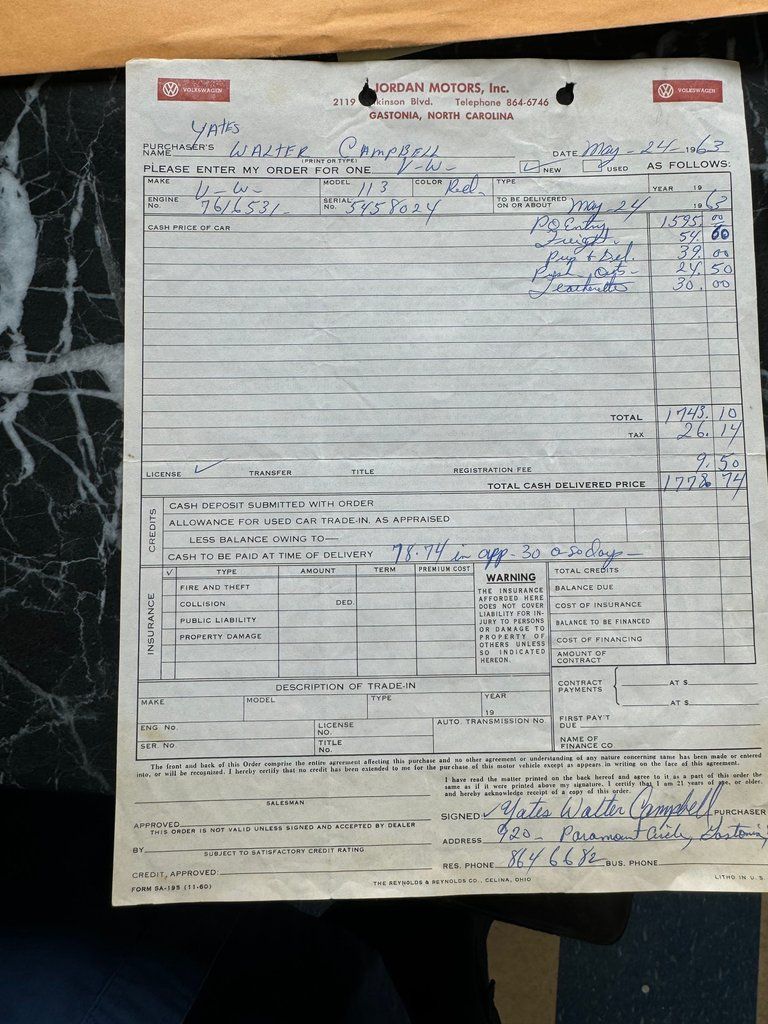 VOLKSWAGEN JORDAN MOTORS, Inc. VOLKSWAGEN
2119 kinson Blvd. Telephone 864-6746
GASTONIA, NORTH CAROLINA
YATES
PURCHASER'S NAME WALTER CAMPBELL DATE May-24-1963
(PRINT OR TYPE)
PLEASE ENTER MY ORDER FOR ONE V-W- ✓ NEW USED AS FOLLOWS:
MAKE V-W- MODEL 113 COLOR Red TYPE YEAR 19
ENGINE No. 7616531 SERIAL No. 5458024 TO BE DELIVERED ON OR ABOUT May 24 1963
CASH PRICE OF CAR P.O Entry 1595.00
Freight 54.60
Prep & Del. 39.00
Push Outs 24.50
Leatherette 30.00
TOTAL 1743.10
TAX 26.14
9.50
LICENSE ✓ TRANSFER TITLE REGISTRATION FEE
TOTAL CASH DELIVERED PRICE 1778.74
CREDITS
CASH DEPOSIT SUBMITTED WITH ORDER
ALLOWANCE FOR USED CAR TRADE-IN. AS APPRAISED
LESS BALANCE OWING TO—
CASH TO BE PAID AT TIME OF DELIVERY 78.74 in app-30 or so days-
INSURANCE
✓ TYPE AMOUNT TERM PREMIUM COST
FIRE AND THEFT
COLLISION DED.
PUBLIC LIABILITY
PROPERTY DAMAGE
WARNING
THE INSURANCE
AFFORDED HERE
DOES NOT COVER
LIABILITY FOR IN-
JURY TO PERSONS
OR DAMAGE TO
PROPERTY OF
OTHERS UNLESS
SO INDICATED
HEREON.
TOTAL CREDITS
BALANCE DUE
COST OF INSURANCE
BALANCE TO BE FINANCED
COST OF FINANCING
AMOUNT OF CONTRACT
CONTRACT PAYMENTS AT $
AT $
FIRST PAY'T DUE
NAME OF FINANCE CO.
DESCRIPTION OF TRADE-IN
MAKE MODEL TYPE YEAR 19
ENG No. LICENSE NO. AUTO. TRANSMISSION No.
SER. No. TITLE No.
The front and back of this Order comprise the entire agreement affecting this purchase and no other agreement or understanding of any nature concerning same has been made or entered
into, or will be recognized. I hereby certify that no credit has been extended to me for the purchase of this motor vehicle except as appears in writing on the face of this agreement.
I have read the matter printed on the back hereof and agree to it as a part of this order the
same as if it were printed above my signature. I certify that I am 21 years of age, or older,
and hereby acknowledge receipt of a copy of this order.
SALESMAN
APPROVED
THIS ORDER IS NOT VALID UNLESS SIGNED AND ACCEPTED BY DEALER
BY
SUBJECT TO SATISFACTORY CREDIT RATING
CREDIT, APPROVED:
SIGNED ✓ Yates Walter Campbell PURCHASER
ADDRESS 920- Paramount Circle, Gastonia,
RES. PHONE 864 6682 BUS. PHONE
FORM SA-195 (11-60) THE REYNOLDS & REYNOLDS CO., CELINA, OHIO LITHO IN U. S.